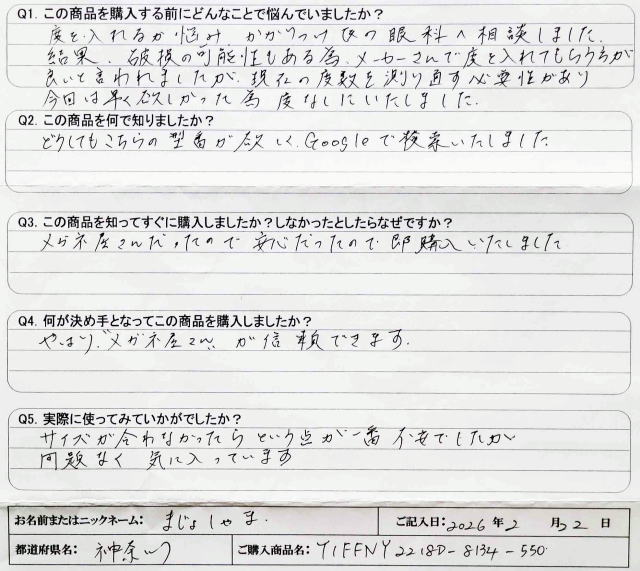 Q1. この商品を購入する前にどんなことで悩んでいましたか？
度を入れるか悩み、かかりつけの眼科へ相談しました。
結果、破損の可能性もある為、メーカーさんで度を入れてもらう方が
良いと言われましたが、現在の度数を測り直す必要性があり
今回は早く欲しかった為 度なしにいたしました。
Q2. この商品を何で知りましたか？
どうしてもこちらの型番が欲しく、Googleで検索いたしました
Q3. この商品を知ってすぐに購入しましたか？しなかったとしたらなぜですか？
メガネ屋さんだったので安心だったので即購入いたしました
Q4. 何が決め手となってこの商品を購入しましたか？
やはり、"メガネ屋さん"が信頼できます。
Q5. 実際に使ってみていかがでしたか？
サイズが合わなかったらという点が一番不安でしたが
問題なく気に入っています
お名前またはニックネーム： まじょしゃま。 ご記入日：2026年2月22日
都道府県名： 神奈川 ご購入商品名： TIFFNY 2218D-8134-550